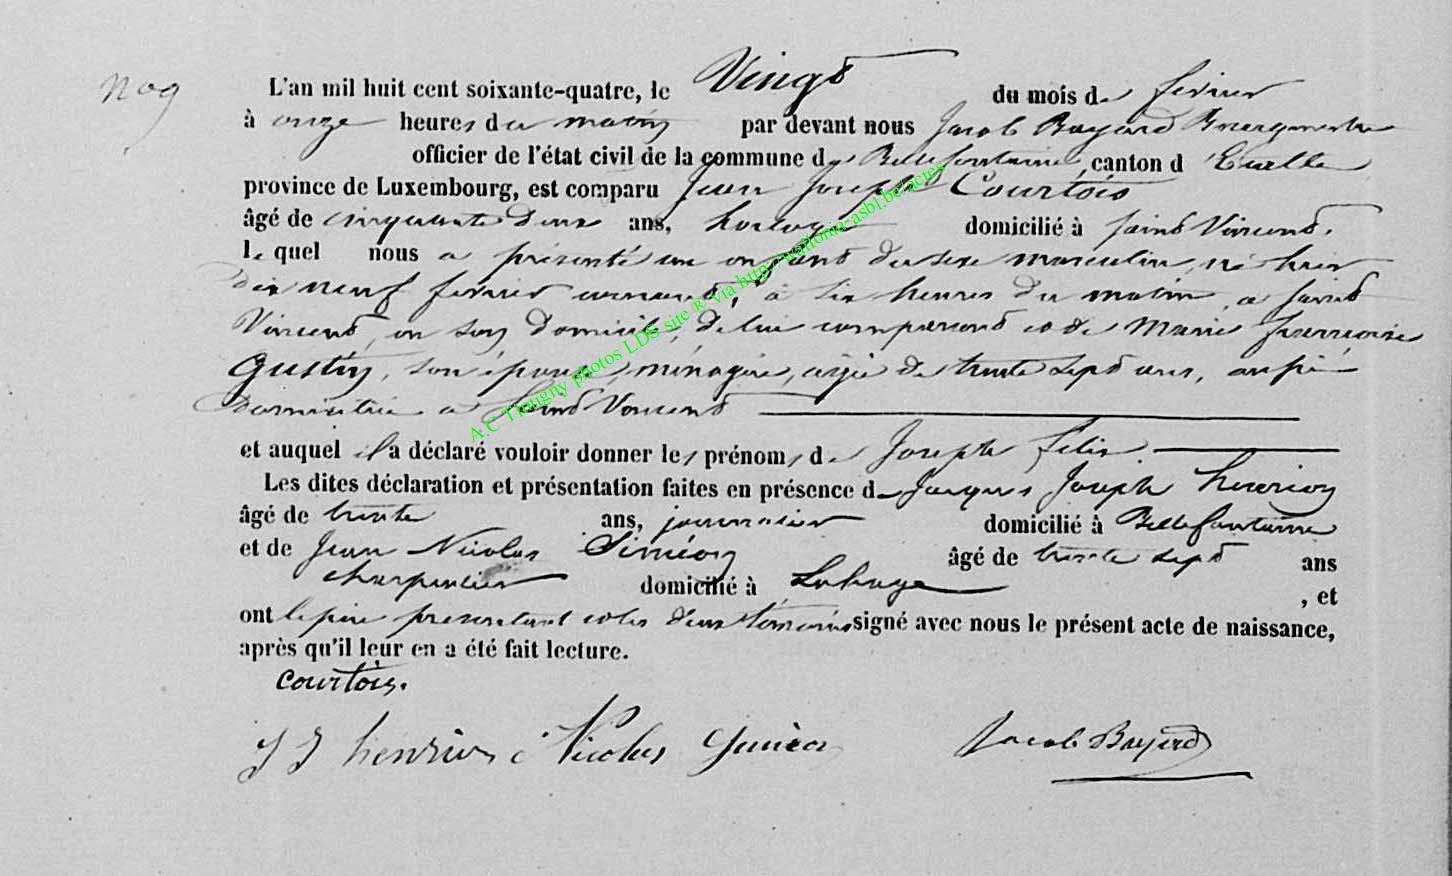 N° 9
L'an mil huit cent soixante-quatre, le Vingt du mois de février
à onze heures du matin par devant nous Jacob Bayard Bourgmestre
officier de l'état civil de la commune de Bellefontaine, canton d'Etalle
province de Luxembourg, est comparu Jean Joseph Courtois
âgé de cinquante deux ans, horloger domicilié à Saint Vincent,
lequel nous a présenté un enfant du sexe masculin, né hier
dix neuf février courant, à six heures du matin, à Saint
Vincent, en son domicile, de lui comparant et de Marie
Gustin, son épouse, ménagère, âgée de trente sept ans, aussi
domiciliée à Saint Vincent
et auquel il a déclaré vouloir donner les prénoms de Joseph Félix
Les dites déclaration et présentation faites en présence de Jacques Joseph Henrion
âgé de trente ans, journalier domicilié à Bellefontaine
et de Jean Nicolas Siméon âgé de trente sept ans
charpentier domicilié à Lahage, et
ont le père présentant et les deux témoins signé avec nous le présent acte de naissance,
après qu'il leur en a été fait lecture.
Courtois.
J J henrion Nicolas Siméon Jacob Bayard
A.C Tintigny photos LDS site ® via http://wallonia-asbl.be/actes